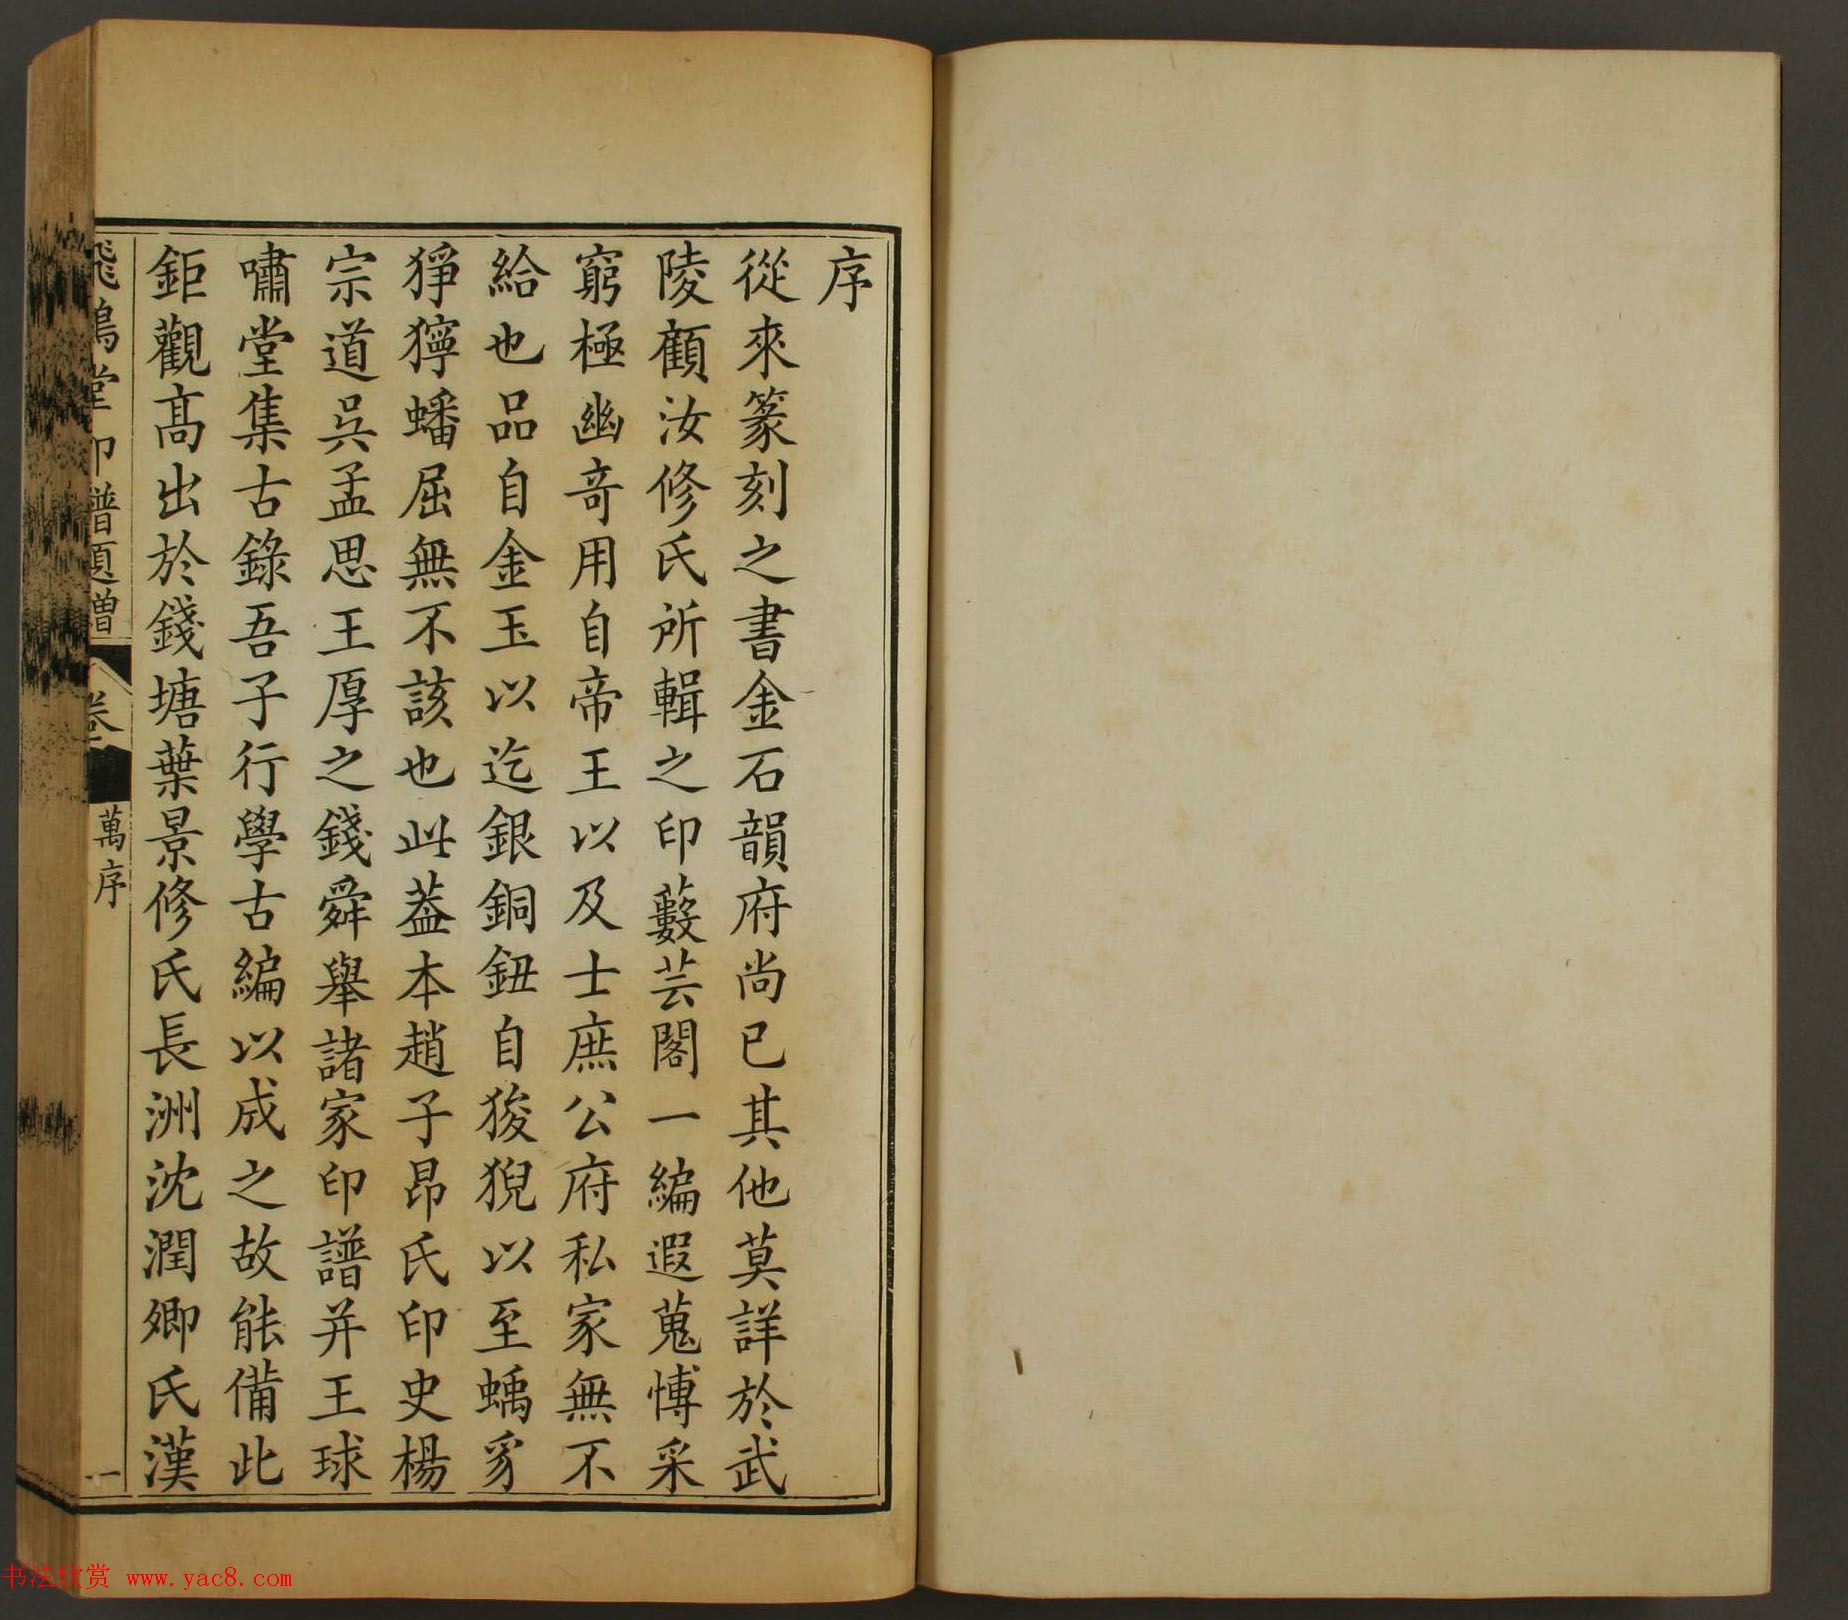 序
從來篆刻之書金石韻府尚已其他莫詳於武
陵顧汝修氏所輯之印藪芸閣一編遐蒐博采
窮極幽奇用自帝王以及士庶公府私家無不
給也品自金玉以迄銀銅鈕自狻猊以至螭豸
猙獰蟠屈無不該也此葢本趙子昂氏印史楊
宗道吳孟思王厚之錢舜舉諸家印譜并王球
嘯堂集古錄吾子行學古編以成之故能備此
鉅觀髙出於錢塘葉景修氏長洲沈潤卿氏漢
飛鴻堂印譜
卷
萬序
一
书法欣赏 www.yac8.com